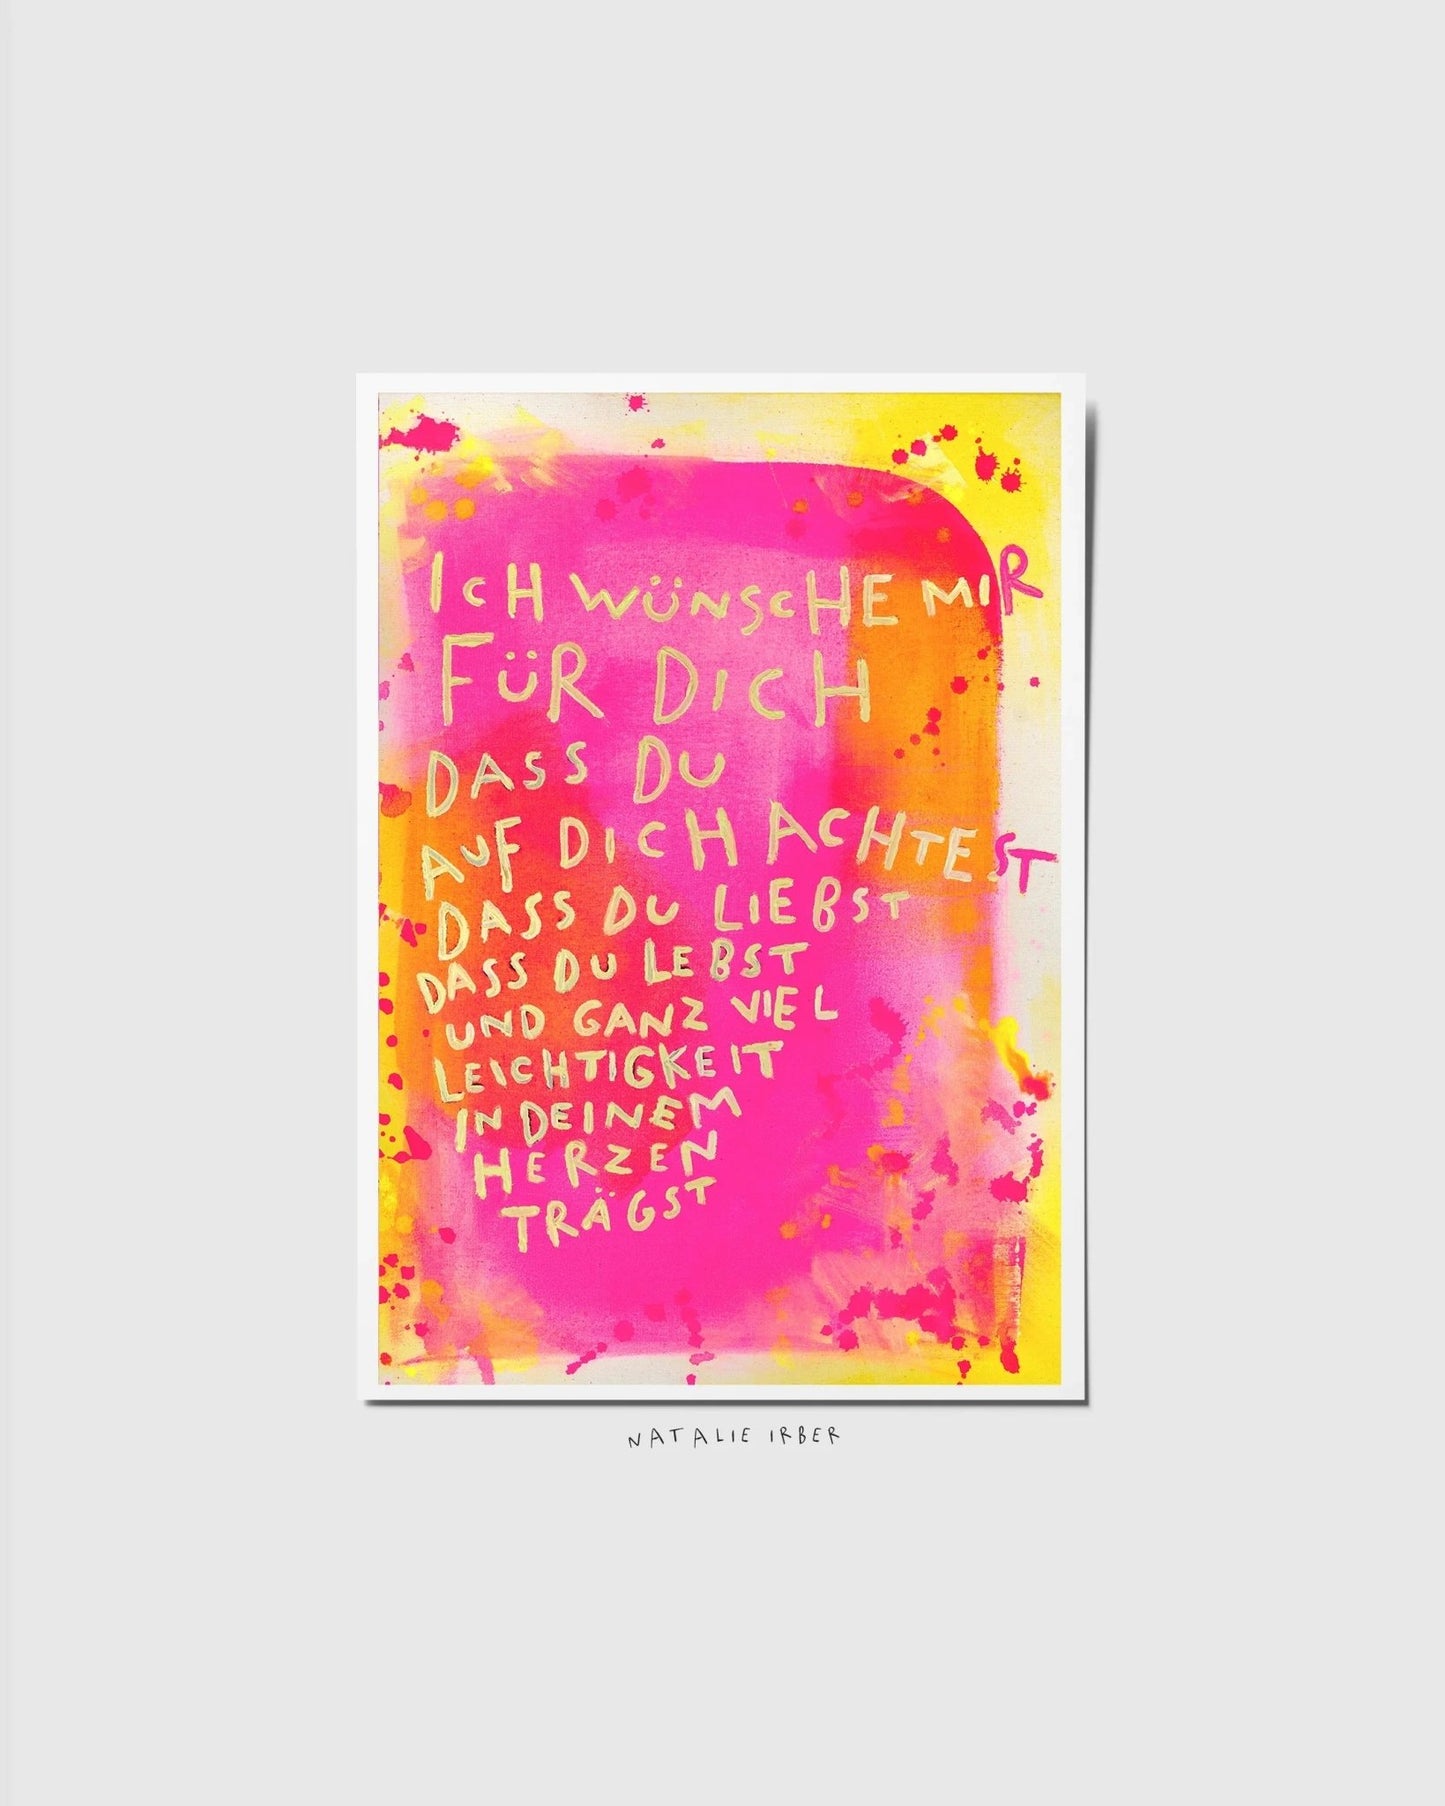 ICH WÜNSCHE MIR
FÜR DICH
DASS DU
AUF DICH ACHTEST
DASS DU LIEBST
DASS DU LEBST
UND GANZ VIEL
LEICHTIGKEIT
IN DEINEM
HERZEN
TRÄGST
NATALIE IRBER